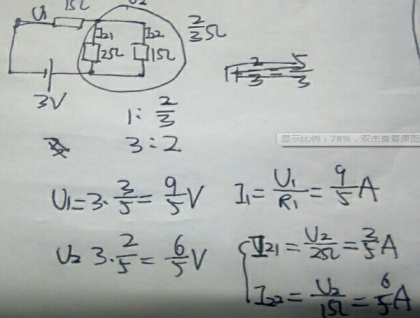 U₁ 1Ω U₂
I₂₁ I₂₂ 2/3Ω
2Ω 1Ω
3V
1+2/3=5/3
1:2/3
3:2
显示比例：78%，双击查看原图
U₁=3·3/5=9/5V I₁=U₁/R₁=9/5A
U₂ 3·2/5=6/5V I₂₁=U₂/2Ω=3/5A
I₂₂=U₂/1Ω=6/5A